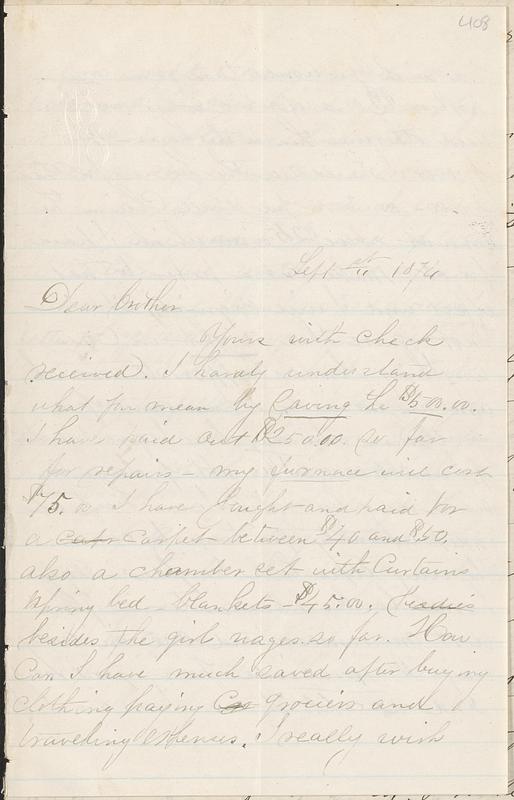 408
Sept 1874
Dear brother
Yours with check
received. I hardly understand
what you mean by saving the $500.00.
I have paid out $250.00 so far
for repairs - my furnace will cost
$75.00 I have bought and paid for
a carpet between $40 and $50.
also a chamber set with Curtains
spring bed - blankets - $45.00.
besides the girl wages so far. How
Can I have much saved after buying
clothing paying grociers and
travelling expenses. I really wish